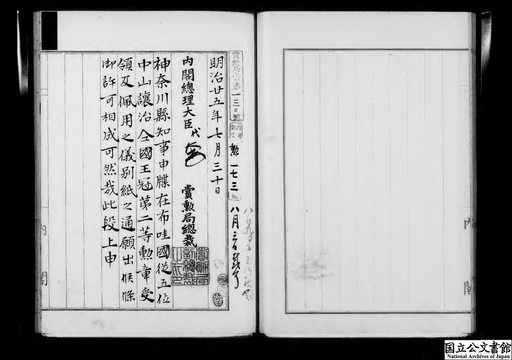 明治廿五年七月三十日
内閣總理大臣
賞勲局總裁
神奈川縣知事申牒在布哇國從五位
中山讓治仝國王冠第二等勲章受
領及佩用之儀別紙之通願出候條
御許可相成可然哉此段上申
勲一七三
内閣
国立公文書館
National Archives of Japan